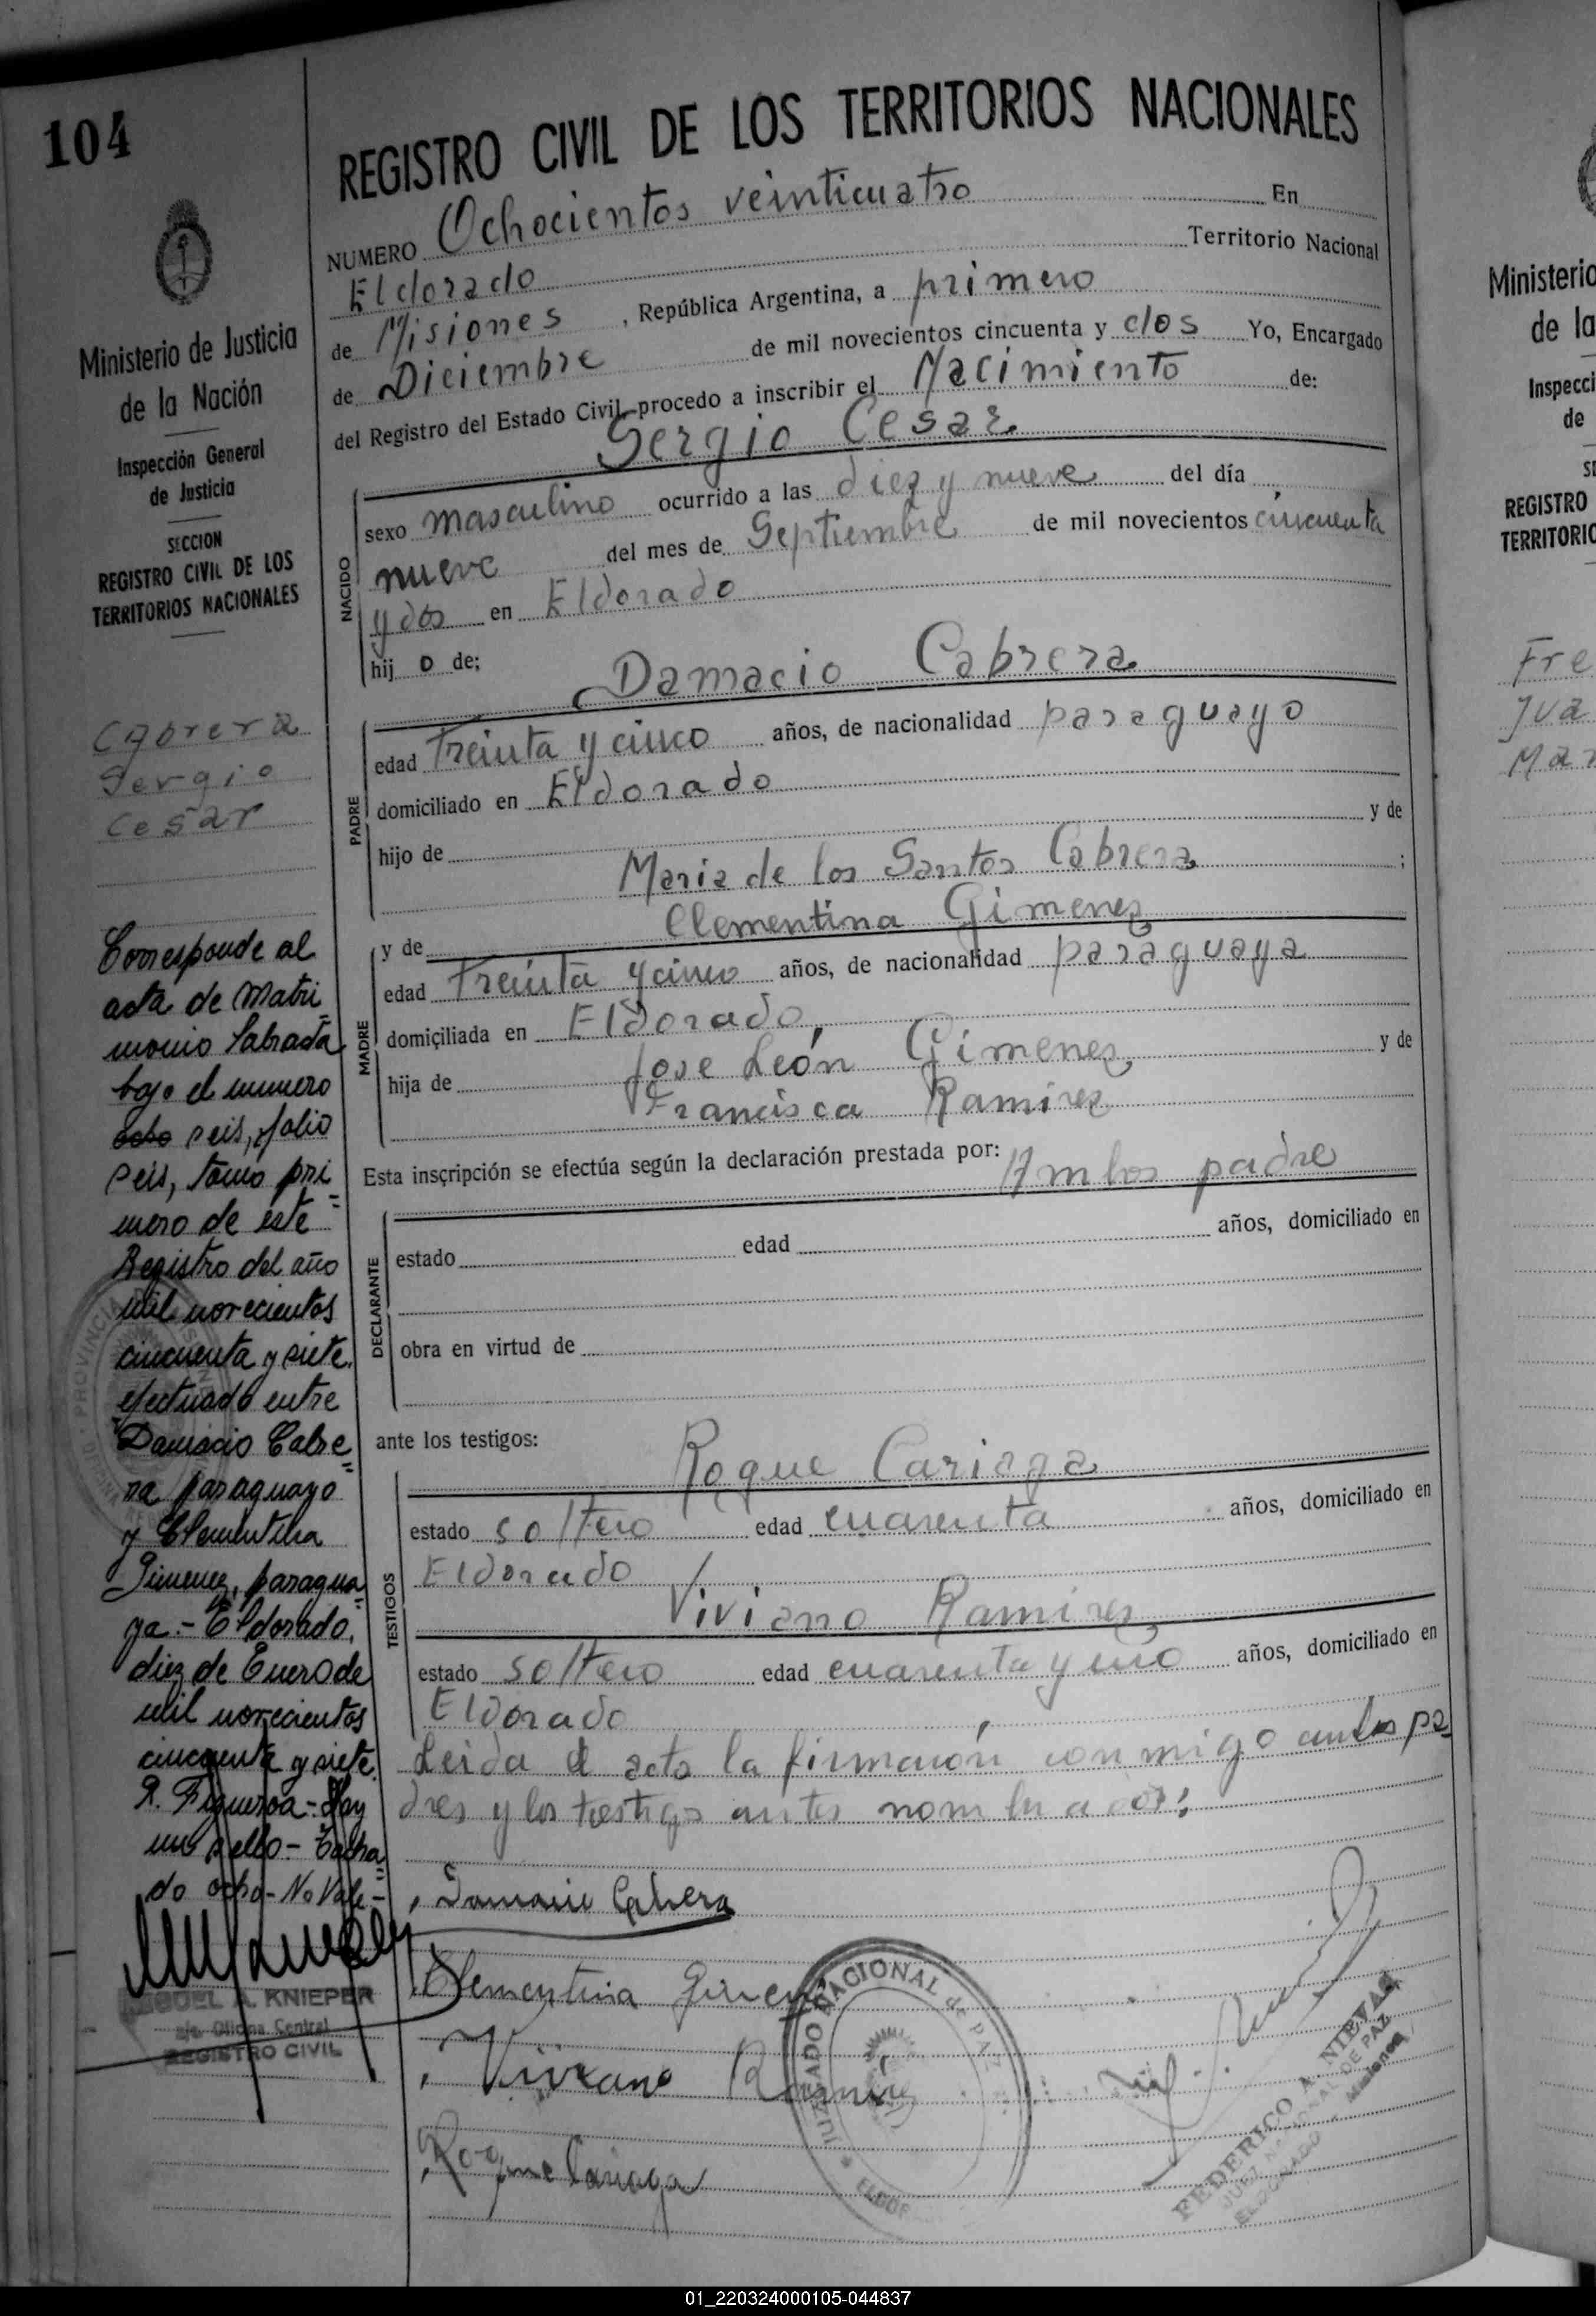 104
Ministerio de Justicia
de la Nación
Inspección General
de Justicia
SECCION
REGISTRO CIVIL DE LOS
TERRITORIOS NACIONALES
Cabrera
Sergio
Cesar
Corresponde al
acta de Matri=
monio labrada
bajo el numero
ocho seis, folio
seis, tomo pri=
mero de este
Registro del año
mil novecientos
cincuenta y siete.
efectuado entre
Damacio Cabre=
ra paraguayo
y Clementina
Jimenez, paragua=
ya.- Eldorado,
diez de Enero de
mil novecientos
cincuenta y siete.
R. Figueroa - Hay
un sello - Tacha=
do ocho - No Vale -
MIGUEL A. KNIEPER
Oficina Central
REGISTRO CIVIL
REGISTRO CIVIL DE LOS TERRITORIOS NACIONALES
NUMERO Ochocientos veinticuatro En
Eldorado Territorio Nacional
de Misiones, República Argentina, a primero
de Diciembre de mil novecientos cincuenta y dos Yo, Encargado
del Registro del Estado Civil, procedo a inscribir el Nacimiento de:
Sergio Cesar
NACIDO
sexo masculino ocurrido a las diez y nueve del día
nueve del mes de Septiembre de mil novecientos cincuenta
y dos en Eldorado
hijo de;
Damacio Cabrera
PADRE
edad Treinta y cinco años, de nacionalidad paraguayo
domiciliado en Eldorado
hijo de y de
Maria de los Santos Cabrera ;
Clementina Gimenez
MADRE
y de
edad Treinta y cinco años, de nacionalidad paraguaya
domiciliada en Eldorado,
hija de Jose León Gimenez y de
Francisca Ramirez
Esta inscripción se efectúa según la declaración prestada por: Ambos padre
DECLARANTE
estado edad años, domiciliado en
obra en virtud de
ante los testigos:
Roque Cariaga
TESTIGOS
estado soltero edad cuarenta años, domiciliado en
Eldorado
Viviano Ramirez
estado soltero edad cuarenta y uno años, domiciliado en
Eldorado
Leida el acta la firmarón conmigo ambos pa
dres y los testigo antes nombrados;
Damacio Cabrera
Clementina Gimenez
Viviano Ramirez
Roque Cariaga
JUZGADO NACIONAL de PAZ
FEDERICO A. NIEVAS
JUEZ NACIONAL DE PAZ
ELDORADO - Misiones
Ministerio
de la
Inspecci
de
REGISTRO
TERRITORIO
Fre
Jua
Mar
01_220324000105-044837